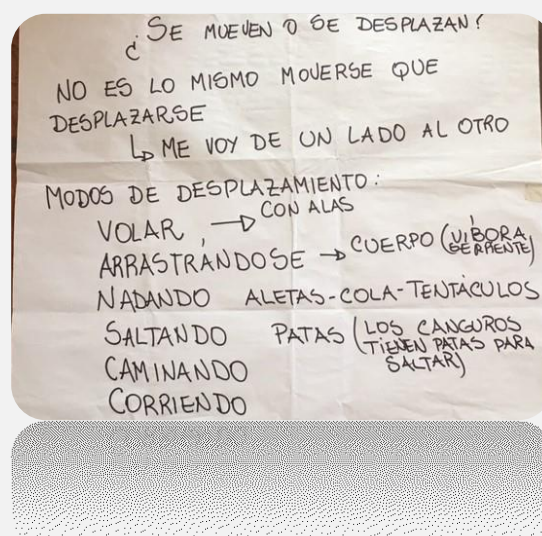 ¿SE MUEVEN O SE DESPLAZAN?
NO ES LO MISMO MOVERSE QUE
DESPLAZARSE
↳ ME VOY DE UN LADO AL OTRO
MODOS DE DESPLAZAMIENTO:
VOLAR → CON ALAS
ARRASTRÁNDOSE → CUERPO (VÍBORA, SERPIENTE)
NADANDO ALETAS-COLA-TENTÁCULOS
SALTANDO PATAS (LOS CANGUROS
TIENEN PATAS PARA
SALTAR)
CAMINANDO
CORRIENDO